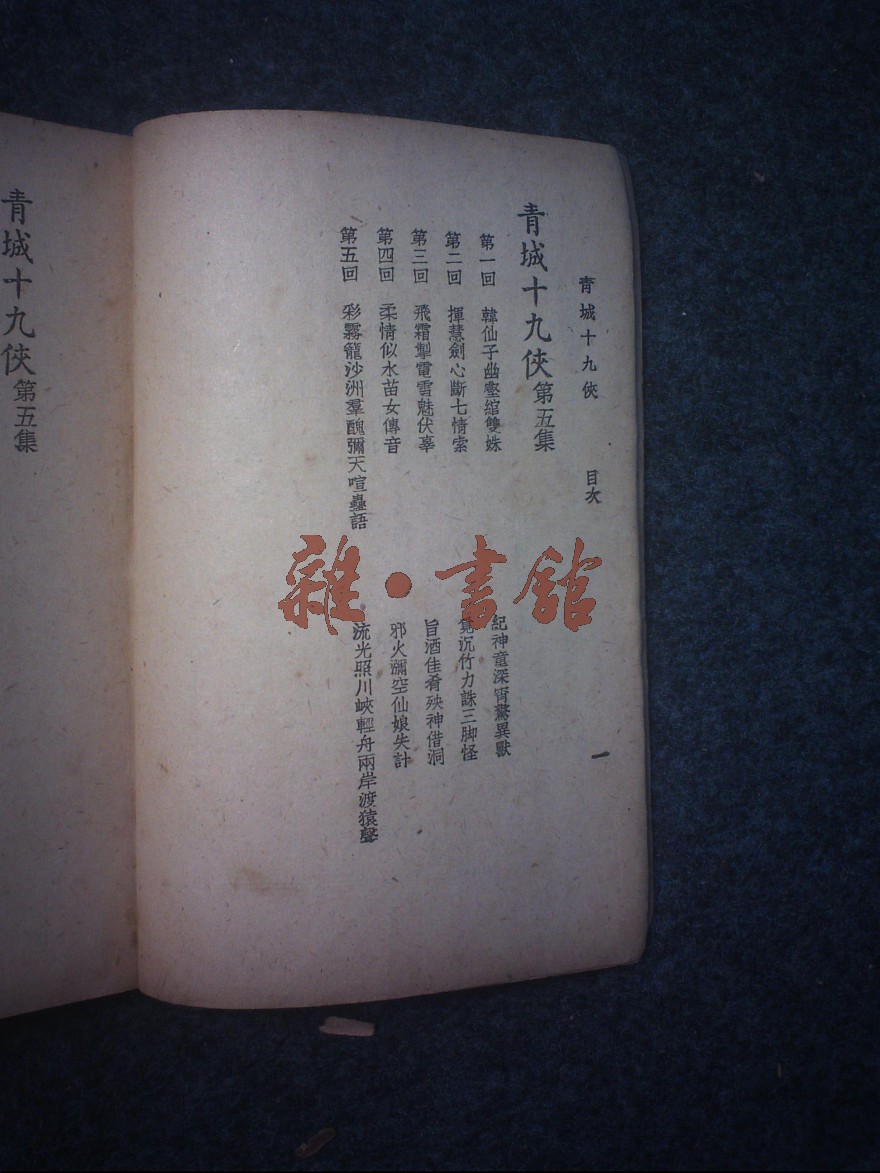 青城十九俠 目次 一
青城十九俠第五集
第一回 韓仙子幽壑綰雙姝 紀神童深宵驚異獸
第二回 揮慧劍心斷七情索 覓沉竹力誅三脚怪
第三回 飛霜掣電雪魅伏辜 旨酒佳肴殃神借洞
第四回 柔情似水苗女傳音 邪火瀰空仙娘失計
第五回 彩霧籠沙洲羣醜彌天喧蠱語 流光照川峽輕舟兩岸渡猿聲
青城十九俠第五集
雜·書館